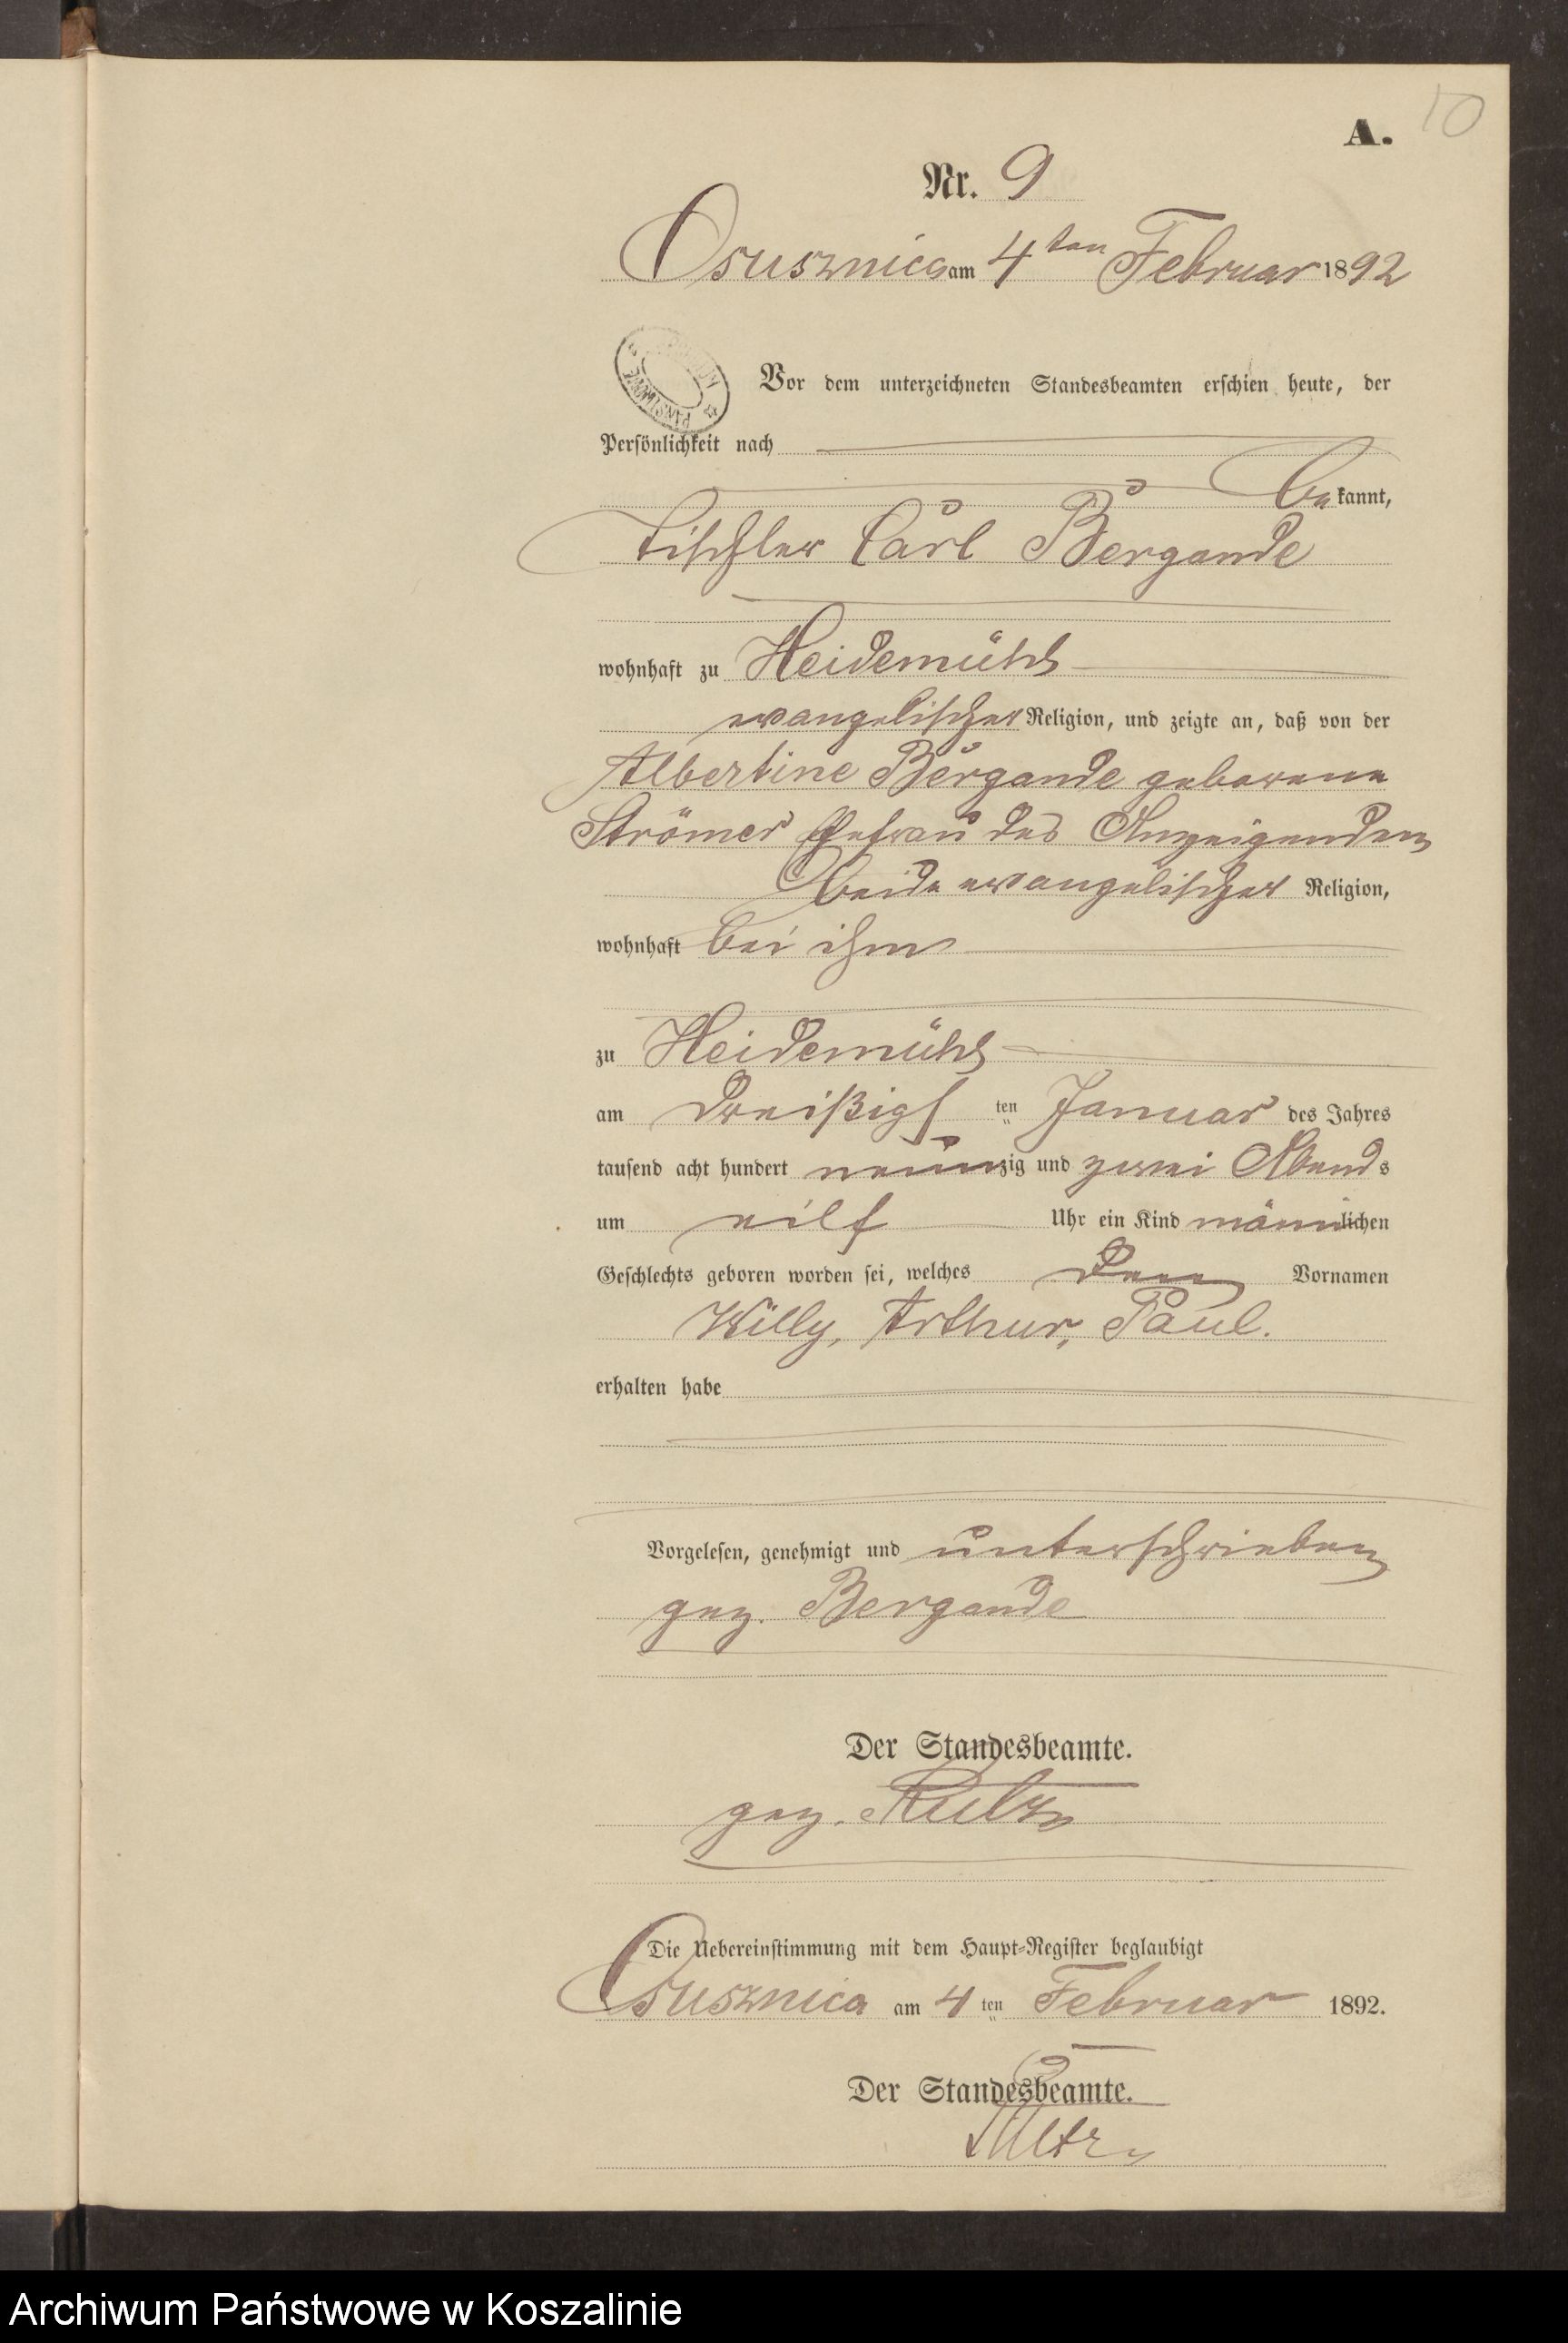 10
A.
Nr. 9
Osusznica am 4ten Februar 1892
Vor dem unterzeichneten Standesbeamten erschien heute, der
Persönlichkeit nach
bekannt,
Tischler Carl Bergande
wohnhaft zu Heidemühl
evangelischer Religion, und zeigte an, daß von der
Albertine Bergande geborene
Strömer Ehefrau des Anzeigenden
beide evangelischer Religion,
wohnhaft bei ihm
zu Heidemühl
am dreißigsten Januar des Jahres
tausend acht hundert neunzig und zwei Abends
um eilf Uhr ein Kind männlichen
Geschlechts geboren worden sei, welches den Vornamen
Willy, Arthur, Paul.
erhalten habe
Vorgelesen, genehmigt und unterschrieben
gez. Bergande
Der Standesbeamte.
gez.
Die Uebereinstimmung mit dem Haupt-Register beglaubigt
Osusznica am 4ten Februar 1892.
Der Standesbeamte.
Archiwum Państwowe w Koszalinie